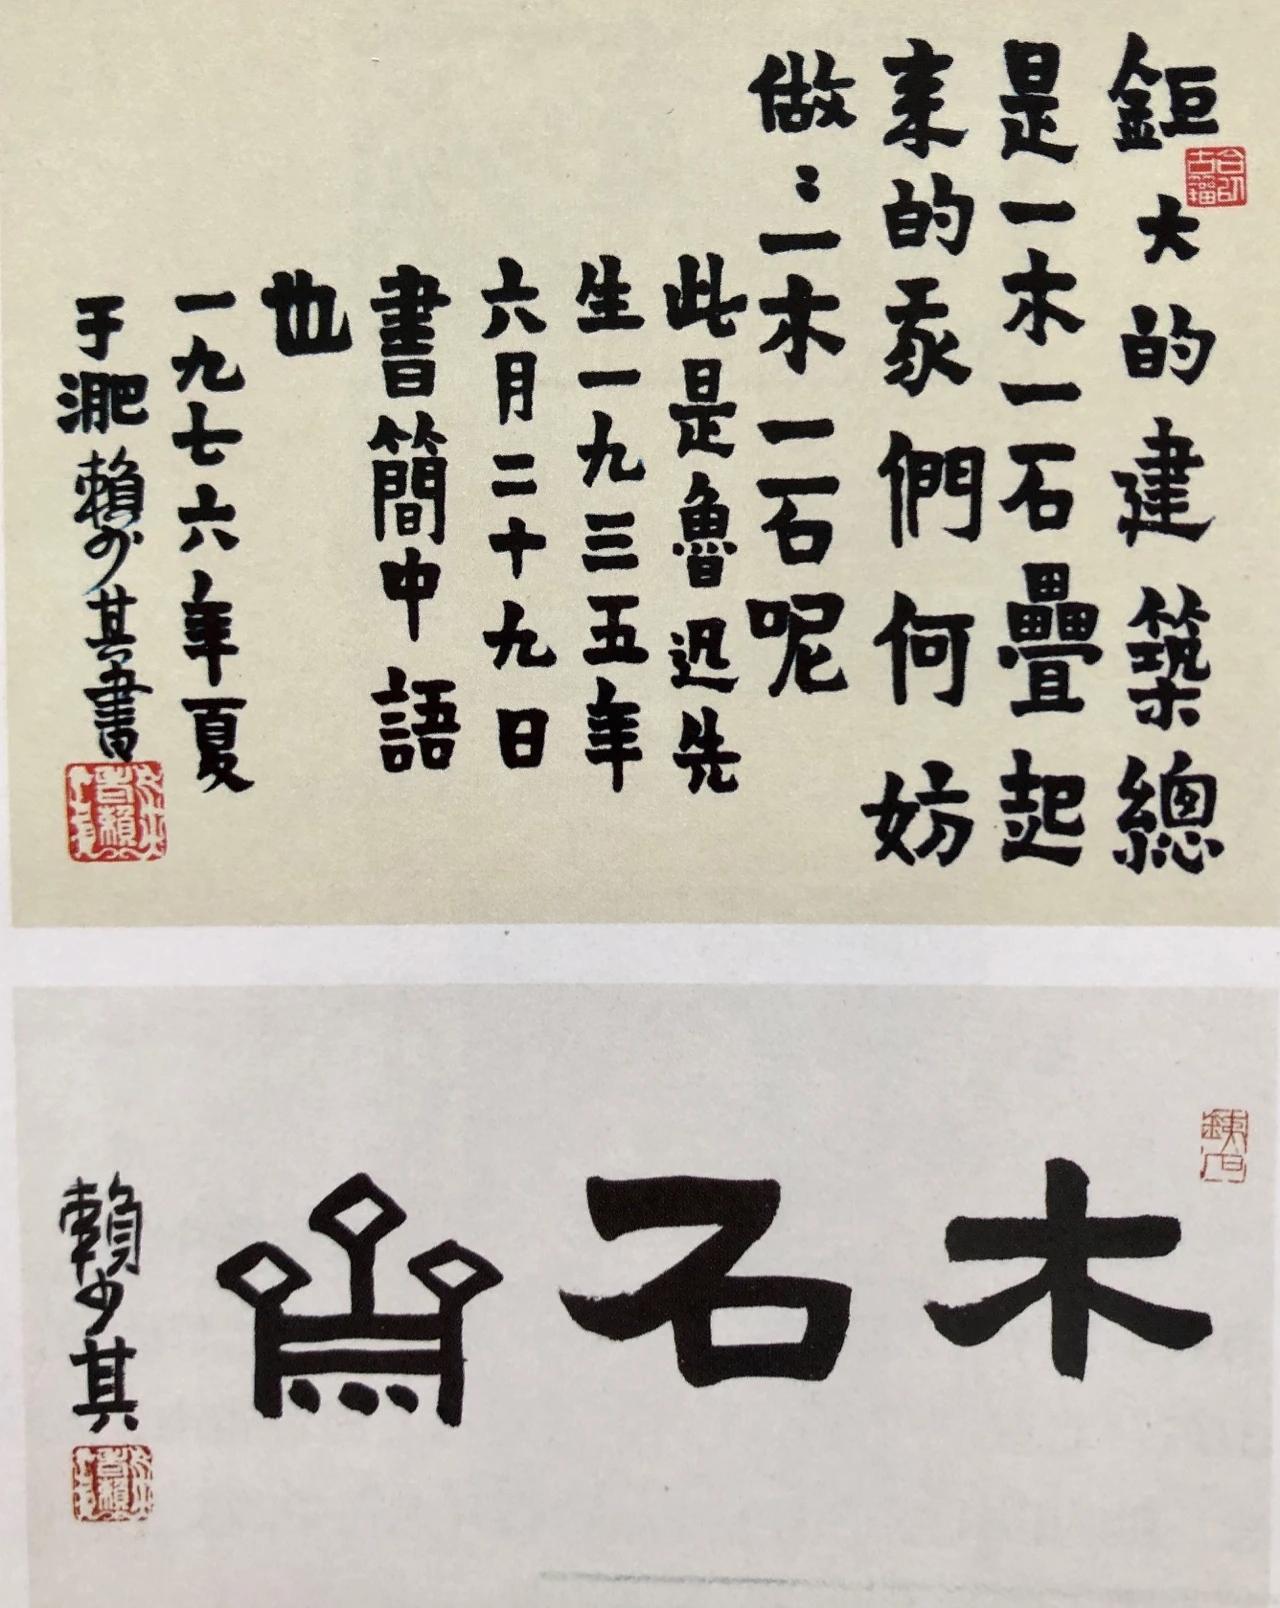 鉅大的建築總
是一木一石疊起
来的我們何妨
做：：一木一石呢
此是魯迅先
生一九三五年
六月二十九日
書簡中語
也
一九七六年夏
于淝賴少其書
木石齋
賴少其